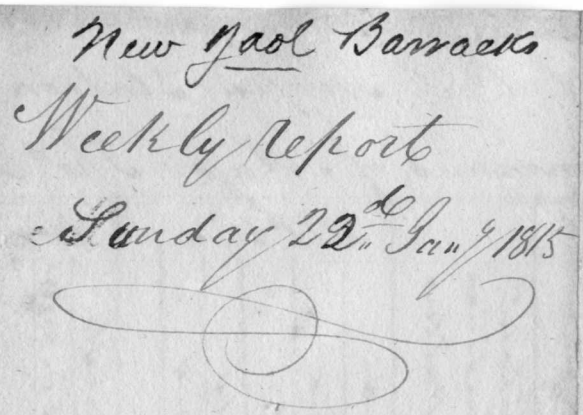 New Gaol Barracks
Weekly report
Sunday 22d Jany 1815